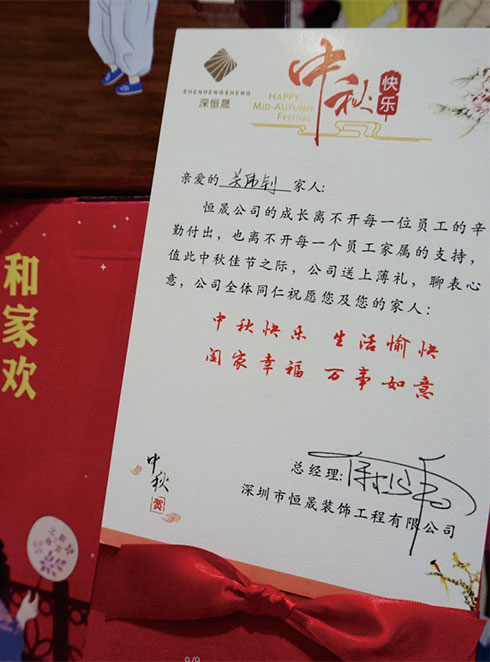 SHENHENGSHENG
深恒晟
HAPPY
MID-AUTUMN
FESTIVAL
中秋
快乐
亲爱的 关伟钊 家人:
恒晟公司的成长离不开每一位员工的辛
勤付出，也离不开每一个员工家属的支持，
值此中秋佳节之际，公司送上薄礼，聊表心
意，公司全体同仁祝愿您及您的家人：
中秋快乐 生活愉快
阖家幸福 万事如意
总经理:
深圳市恒晟装饰工程有限公司
中秋
贺
和家欢
9/9